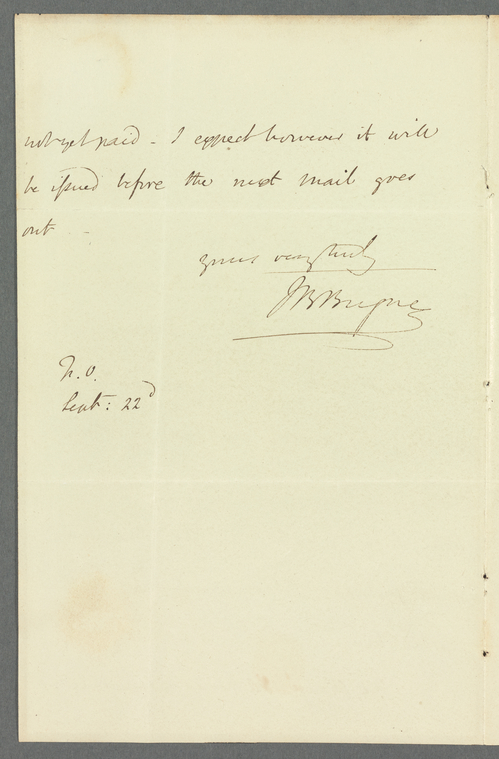 not yet paid - I expect however it will
be issued before the next mail goes
out -
yours very truly
JB
N. O.
Sept: 22d